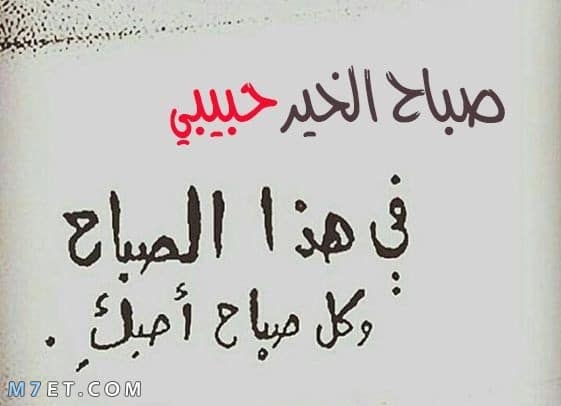 صباح الخير حبيبي
في هذا الصباح
وكل صباح أحبكِ .
M7ET.COM